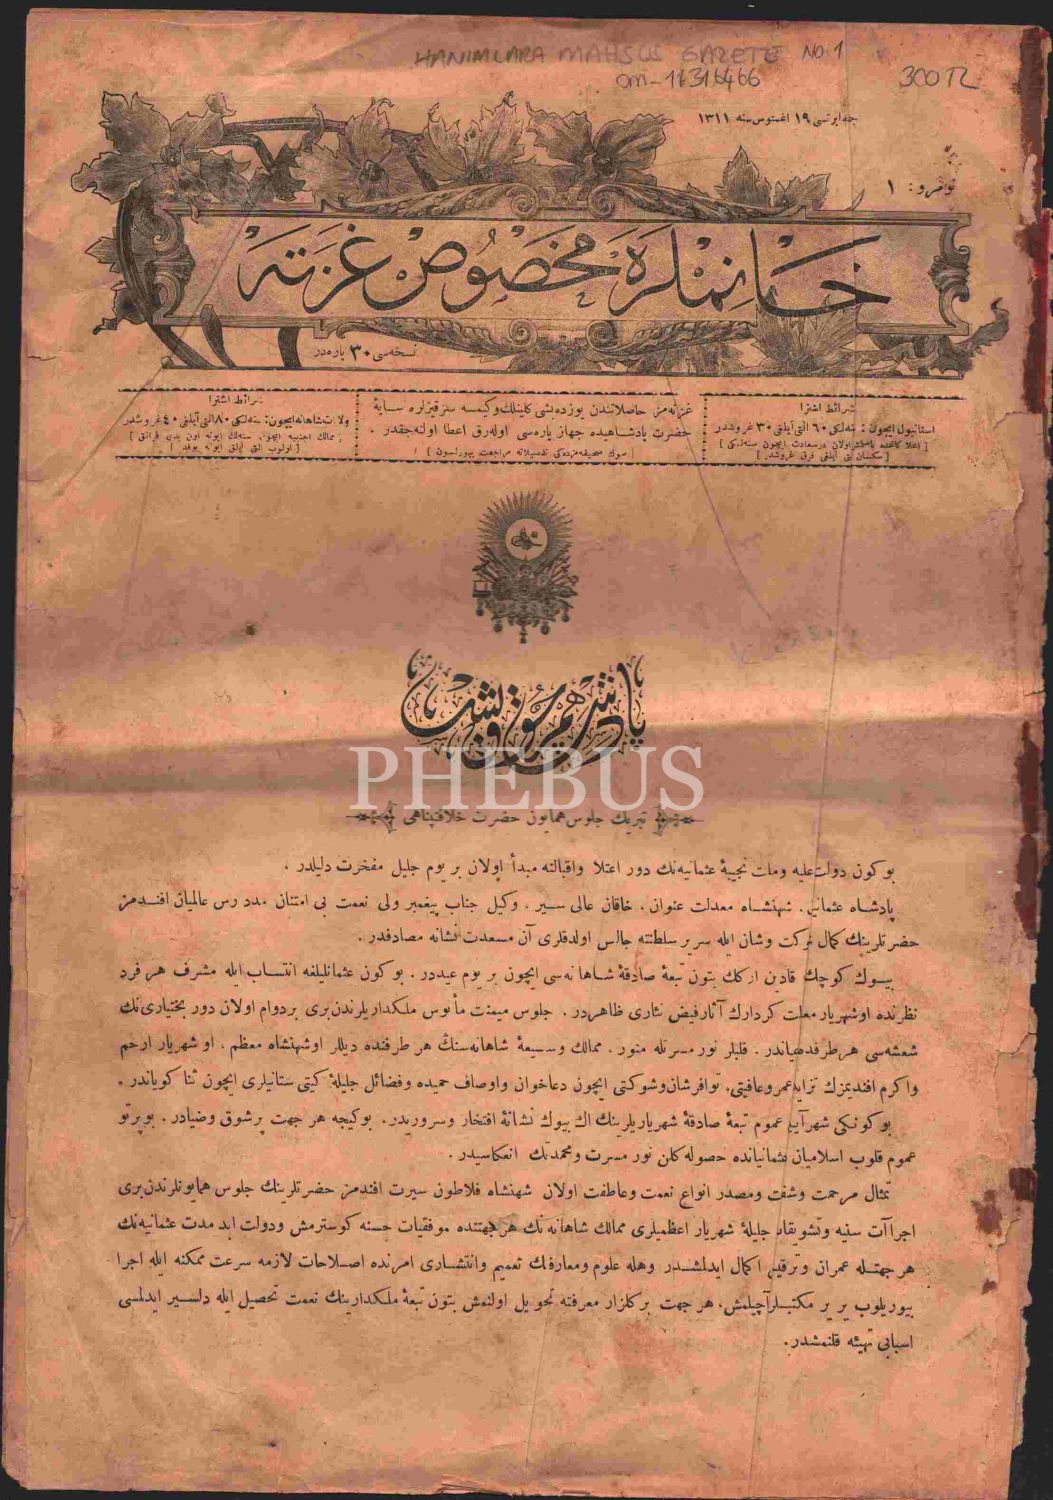 HANIMLARA MAHSUS GAZETE NO:1
om-11316466
300 TL
جمعه ايرتسى ١٩ اغستوس سنه ١٣١١
نومرو: ١
خانملره مخصوص غزته
نسخه‌سى ٣٠ پاره‌در
شرائط اشترا
استانبول ايچون: سنه‌لكى ٦٠ التى آيلغى ٣٠ غروشدر
غزته‌مز حاصلاتندن يوزده بشى كلينلك و كيمسه سز قيزلره سايهٔ
حضرت پادشاهيده جهاز پاره‌سى اوله‌رق اعطا اولنه‌جقدر .
[ صوك صحيفه‌مزده‌كى تفصيلاته مراجعت بيورلسون ]
شرائط اشترا
ولايات شاهانه ايچون: سنه‌لكى ٨٠ التى آيلغى ٤٠ غروشدر
پادشاهم چوق يشا
PHEBUS
تبريك جلوس همايون حضرت خلافتپناهى
بو كون دولت عليه و ملت نجيبهٔ عثمانيه‌نك دور اعتلا و اقبالنه مبدأ اولان بر يوم جليل مفخرت دليلدر .
پادشاه عثمانى، شهنشاه معدلت عنوان، خاقان عالى سير، وكيل جناب پيغمبر ولى نعمت بى امتنان مدد رس عالميان افندمز
حضرتلرينك كمال شوكت و شان ايله سرير سلطنته جالس اولدقلرى آن مسعدت نشانه مصادفدر .
بيوك كوچك قادين اركك بتون تبعهٔ صادقهٔ شاهانه‌سى ايچون بر يوم عيددر . بو كون عثمانليلغه انتساب ايله مشرف هر فرد
نظرنده او شهريار معدلت كردارك آثار فيض نثارى ظاهردر . جلوس ميمنت مأنوس ملكداريلرندن برى بر دوام اولان دور بختيارى‌نك
شعشه‌سى هر طرفده عياندر . قلبلر نور مسرتله منور . ممالك وسيعهٔ شاهانه‌سنك هر طرفنده ديللر او شهنشاه معظم، او شهريار ارحم
و اكرم افنديمزك تزايد عمر و عافيتى، توافر شان و شوكتى ايچون دعاخوان و اوصاف حميده و فضائل جليلهٔ كيتى ستانيلرى ايچون ثنا كوياندر .
بو كونكى شهر آيين عموم تبعهٔ صادقهٔ شهرياريلرينك اك بيوك نشانهٔ افتخار و سروريدر . بو كيجه هر جهت پر شوق و ضيادر . بو پرتو
عموم قلوب اسلاميان عثمانيانده حصوله كلن نور مسرت و محمدتك انعكاسيدر .
تمثال مرحمت و شفقت و مصدر انواع نعمت و عاطفت اولان شهنشاه فلاطون سيرت افندمز حضرتلرينك جلوس همايونلرندن برى
اجراآت سنيه و تشويقات جليلهٔ شهريار اعظميلرى ممالك شاهانه‌نك هر جهتنده موفقيات حسنه كوسترمش و دولت ابد مدت عثمانيه‌نك
هر جهتله عمران و ترقيسى اكمال ايدلمشدر و هله علوم و معارفك تعميم و انتشارى امرنده اصلاحات لازمه سرعت ممكنه ايله اجرا
بيوريلوب ير ير مكتبلر آچيلمش، هر جهت بر كلزار معرفته تحويل اولنمش بتون تبعهٔ ملكدارينك نعمت تحصيل ايله دلسير ايدلمسى
اسبابى تهيئه قلنمشدر .